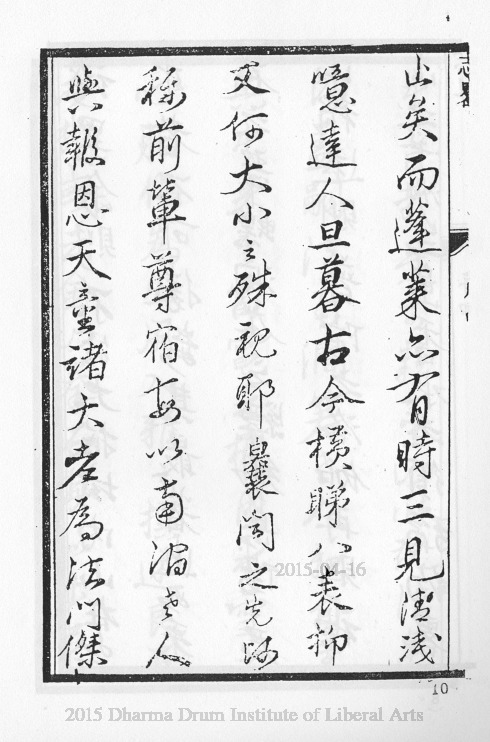 志畧
山矣而蓬萊亦有時三見清淺
噫達人旦暮古今橫睇八表抑
又何大小之殊視耶曩聞之先師
稱前輩尊宿每以南澗老人
與報恩天童諸大老為法門傑
10
2015-04-16
2015 Dharma Drum Institute of Liberal Arts